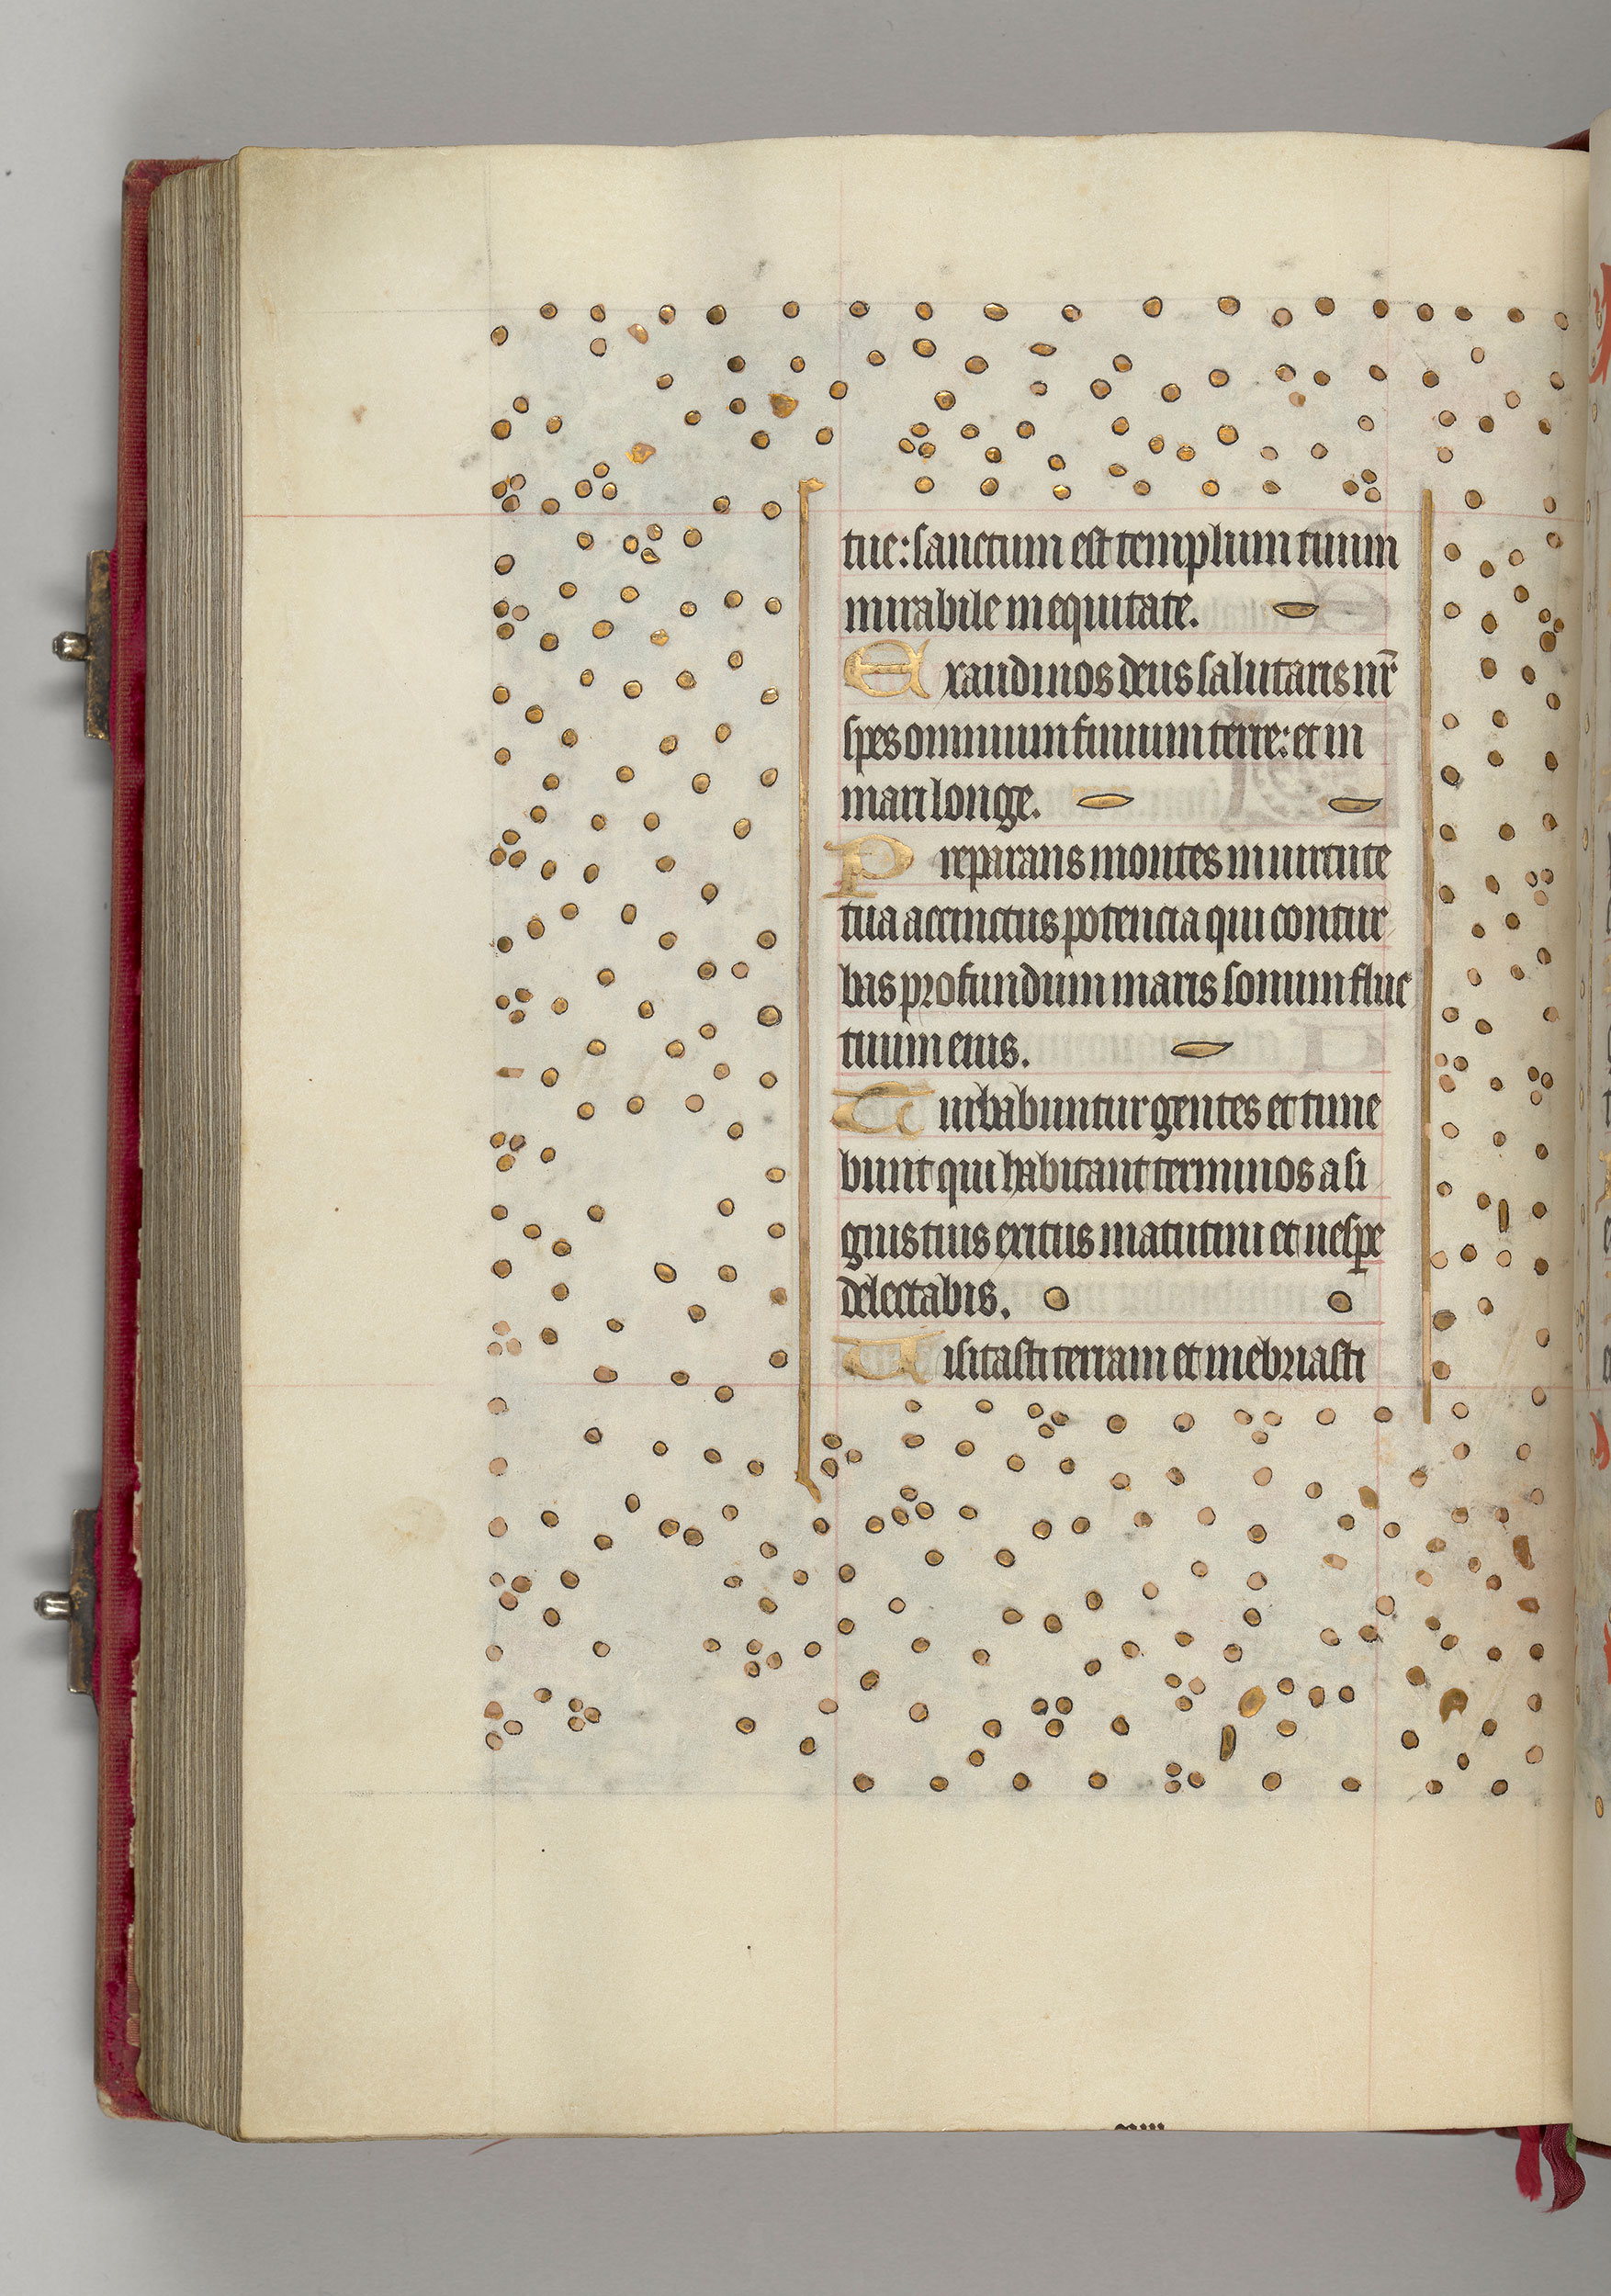 tue: sanctum est templum tuum
mirabile in equitate.
Exaudi nos deus salutaris nr̄
spes omnium finium terre: et in
mari longe.
Preparans montes in uirtute
tua accinctus potencia qui contur
bas profundum maris sonum fluc
tuum eius.
Turbabuntur gentes et time
bunt qui habitant terminos a si
gnis tuis exitus matutini et uespe
delectabis.
Uisitasti terram et inebriasti